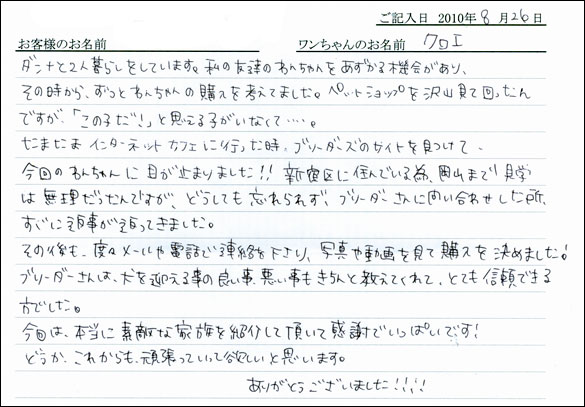 ご記入日 2010年 8 月 26 日
お客様のお名前 ワンちゃんのお名前 クロエ
ダンナと2人暮らしをしています。私の友達のわんちゃんをあずかる機会があり、
その時から、ずっとわんちゃんの購入を考えてました。ペットショップを沢山見て回ったん
ですが、「この子だ!」と思える子がいなくて‥‥。
たまたま インターネットカフェに行った時、ブリーダーズのサイトを見つけて、
今回のわんちゃんに目が止まりました!! 新宿区に住んでいる為、岡山まで見学
は無理だったんですが、どうしても忘れられず、ブリーダーさんに問い合わせした所、
すぐに返事が返ってきました。
その後も、度々メールや電話で連絡を下さり、写真や動画を見て購入を決めました!
ブリーダーさんは、犬を迎える事の良い事、悪い事もきちんと教えてくれて、とても信頼できる
方でした。
今回は、本当に素敵な家族を紹介して頂いて感謝でいっぱいです!
どうか、これからも、頑張っていって欲しいと思います。
ありがとうございました!!!!